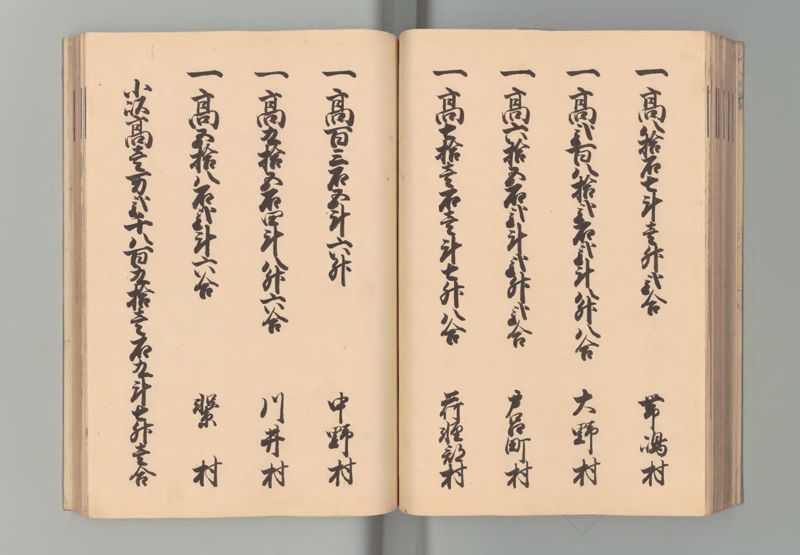 一高八拾石七斗壱升弐合 帯嶋村
一高弐百八拾弐石弐斗八升八合 大野村
一高六拾五石弐斗弐升弐合 戸呂町村
一高七拾壱石壱斗七升八合 村
一高百三石五斗六升 中野村
一高九拾五石四斗八升六合 川井村
一高五拾八石弐斗六合 繋村
小以高壱万弐千八百九拾壱石九斗七升壱合